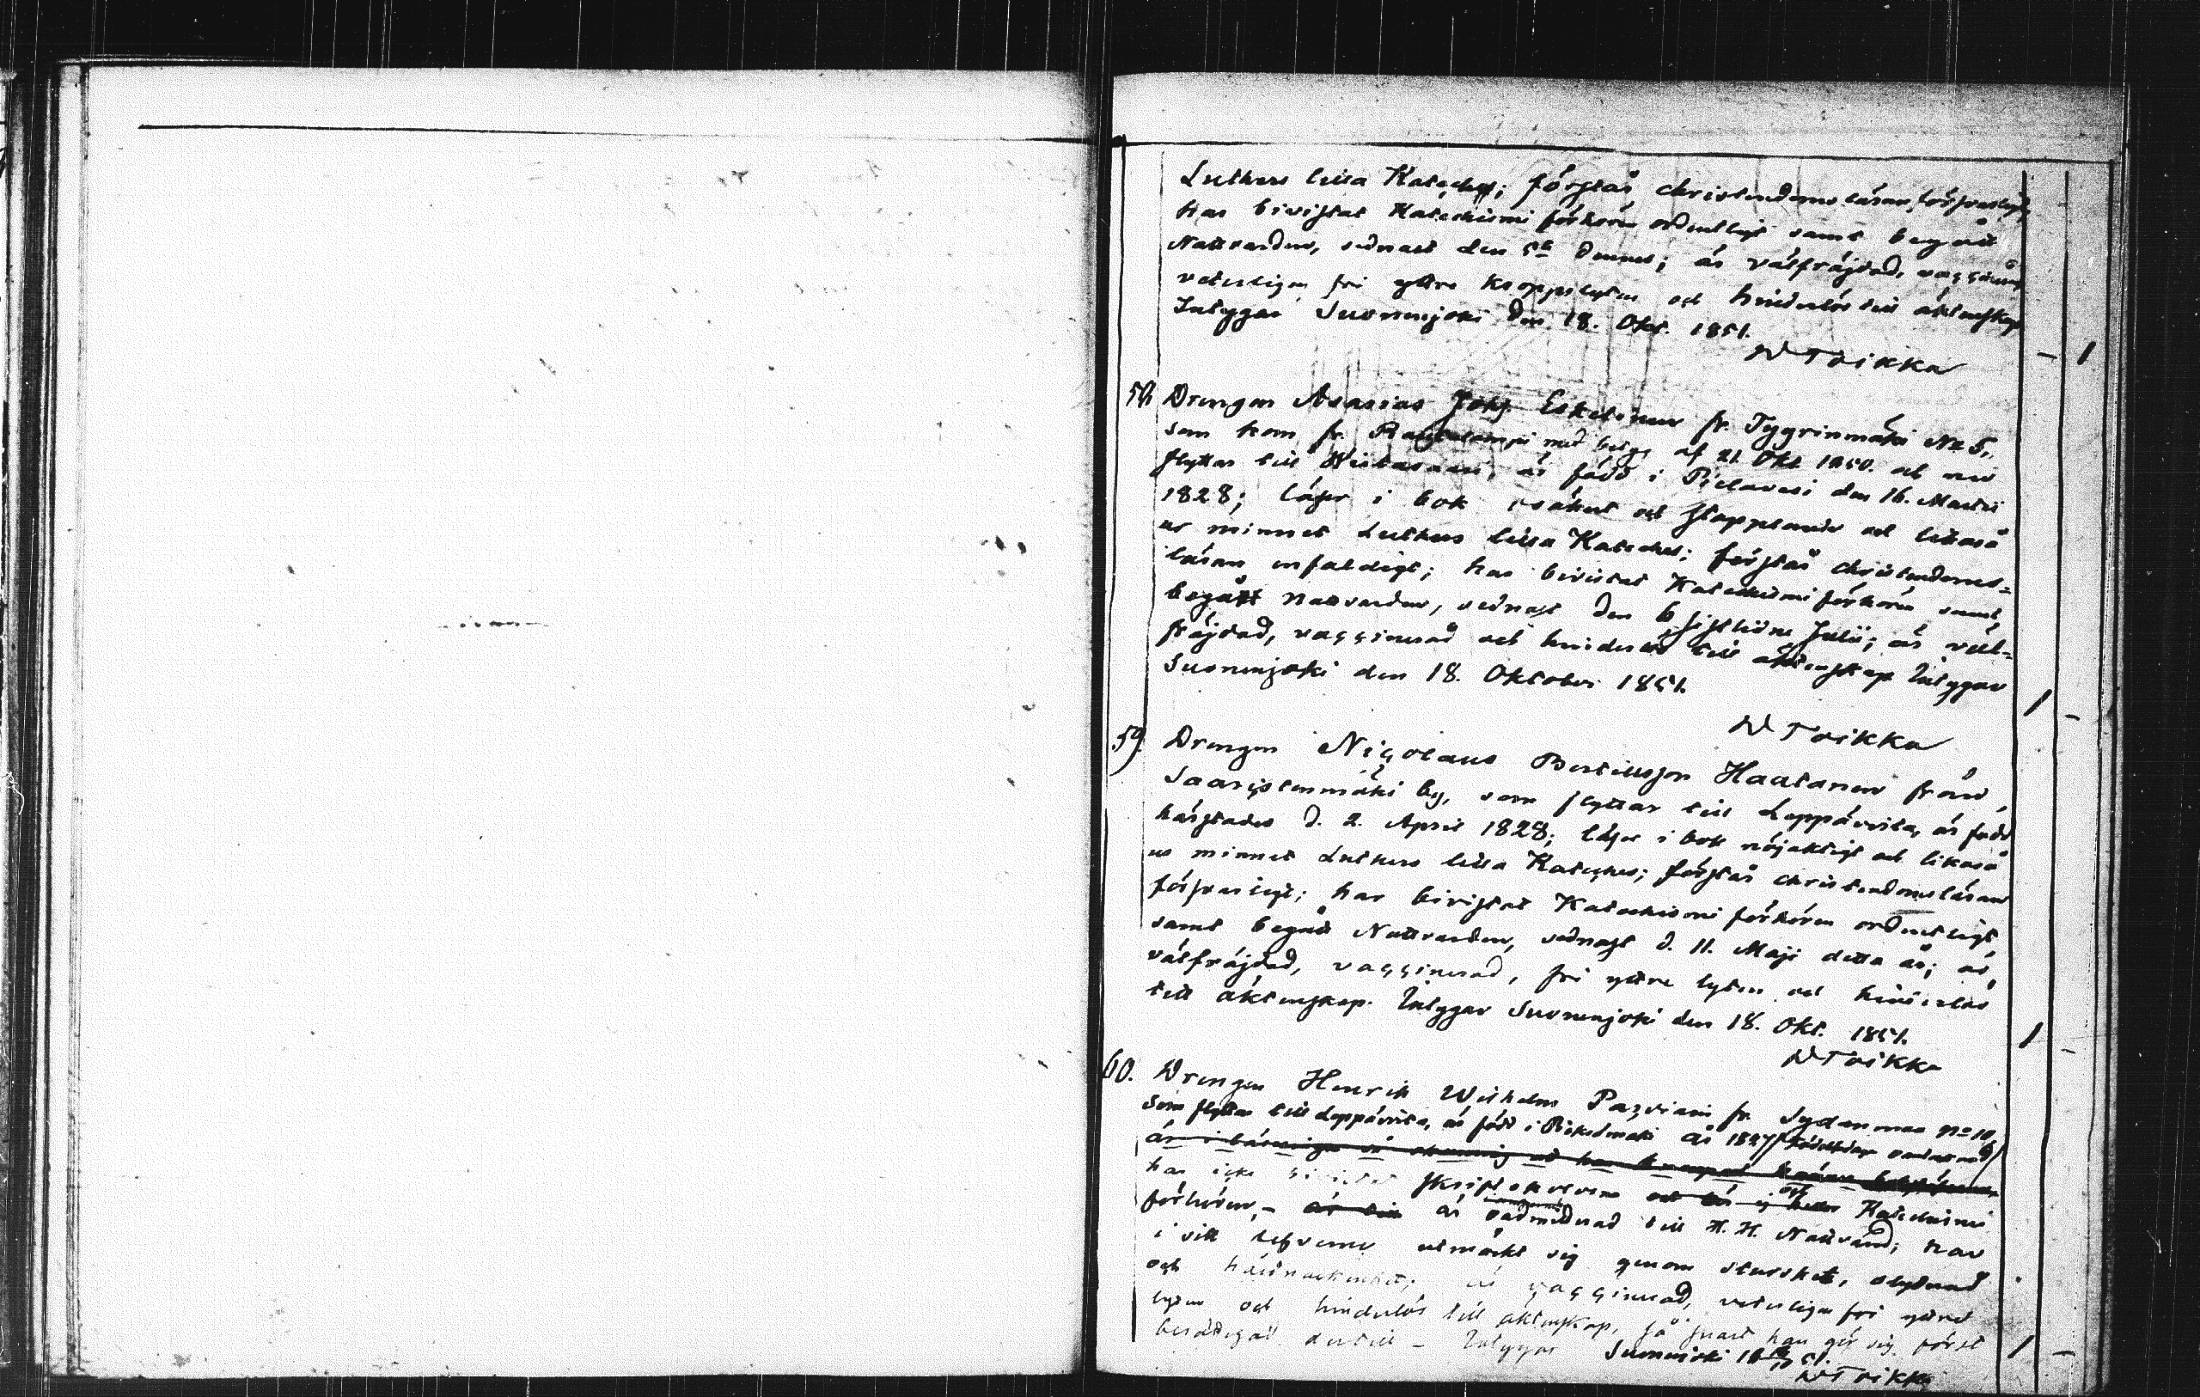 Luthers lilla Kateches; förstår christendomsläran försvarligt,
har bivistat Katechismi förhören ordentligt samt begått
Nattvarden, sednast den 5te dennes; är välfräjdad, vaccinerad,
veterligen fri yttre kroppslyten och hinderlös till äktenskap
Intygar Suonenjoki den 18. Okt. 1851.
N Toikka
— 1
58 Drengen Asarias Johs. Eskelinen fr. Tyyrinmäki No 5,
som kom fr. Rautalampi med betyg af 21 Okt 1850. och nu
flyttar till Wiitasaari, är född i Pielavesi den 16. Martii
1828; läser i bok osäkert och stapplande och likaså
ur minnet Luthers lilla Kateches; förstår christendoms-
läran enfaldigt; har bivistat Katechismi förhören samt
begått nattvarden, sednast den 6 sistlidne Julii; är väl-
fräjdad, vaccinerad och hinderlös till äktenskap Intygar
Suonenjoki den 18. Oktober 1851.
1 —
N Toikka
59) Drengen Nicolaus Bertillsson Haatanen från
Saaristenmäki by, som flyttar till Leppävirta, är född
härstädes d. 2. April 1828; läser i bok nöjaktigt och likaså
ur minnet Luthers lilla Kateches; förstår christendomsläran
försvarligt; har bivistat Katechismi förhören ordentligt,
samt begått Nattvarden, sednast d. 11. Maji detta år; är
välfräjdad, vaccinerad, fri yttre lyten och hinderlös
till äktenskap. Intygar Suonenjoki den 18. Okt. 1851.
1 —
N Toikka
60. Drengen Henrik Wilhelm Parviain fr. Sydanmaa No 10,
som flyttar till Leppävirta, är född i Pieksämäki år 1827
är i läsningen så
har icke bivistat skriftskolorna och Katechismi
förhören, — är oadmitterad till H. H. Nattvard; har
i sitt lefverne utmärkt sig genom sturskhet, olydnad
och hårdnackenhet; är vaccinerad, veterligen fri yttre
lyten och hinderlös till äktenskap, så snart han gör sig först
berättigad dertill — Intygar Suonenjoki 18 51.
1 —
N Toikka